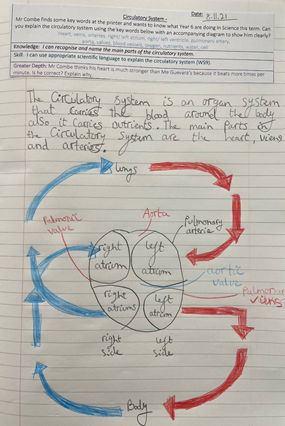 Circulatory System -
Date: 2.11.21
Mr Combe finds some key words at the printer and wants to know what Year 6 are doing in Science this term. Can
you explain the circulatory system using the key words below with an accompanying diagram to show him clearly?
Heart, veins, arteries, right/ left atrium, right/ left ventricle, pulmonary artery,
aorta, valve, blood vessels, oxygen, nutrients, water, cell
Knowledge: I can recognise and name the main parts of the circulatory system.
Skill: I can use appropriate scientific language to explain the circulatory system (WS9).
Greater Depth: Mr Combe thinks his heart is much stronger than Ms Guevara's because it beats more times per
minute. Is he correct? Explain why.
The Circulatory system is an organ system
that carries the blood around the body
also it carries nutrients. The main parts in
the Circulatory System are the heart, viens
and arteries.
lungs
Pulmonic
valve
Aorta
Pulmonary
arterie
right
atrium
left
atrium
aortic
valve
Pulmonary
viens
right
atriums
left
atrium
right
side
left
side
Body